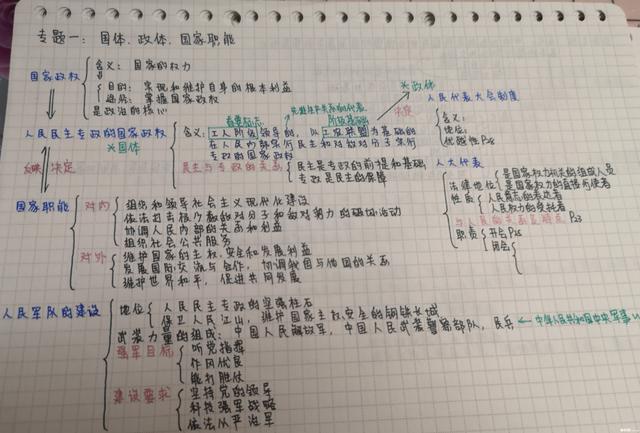 专题一：国体、政体、国家职能
国家政权
含义：国家的权力
目的：实现和维护自身的根本利益
途径：掌握国家政权
是政治的核心
人民民主专政的国家政权
*国体
含义：工人阶级领导的，以工农联盟为基础的
在人民内部实行民主和对敌对分子实行
专政的国家政权
阶级基础
民主与专政的关系
民主是专政的前提和基础
专政是民主的保障
决定
*政体
人民代表大会制度
含义：
地位：
优越性P28
人大代表
法律地位
是国家权力机关的组成人员
是国家权力的直接行使者
性质
人民意志的表达者
人民权力的受托者
与人民的关系
P23
职责
开会P25
闭会
反映
决定
国家职能
对内
组织和领导社会主义现代化建设
依法打击极少数敌对分子和敌对势力的破坏活动
协调人民内部的关系和利益
组织社会公共服务
对外
维护国家的主权、安全和发展利益
发展国际交流与合作，协调我国与他国的关系
维护世界和平，促进共同发展
人民军队的建设
地位
人民民主专政的坚强柱石
保卫人民江山，维护国家主权、安全的钢铁长城
武装力量的组成：中国人民解放军，中国人民武装警察部队，民兵
中华人民共和国中央军事
强军目标
听党指挥
作风优良
能打胜仗
建设要求
坚持党的领导
科技强军战略
依法从严治军